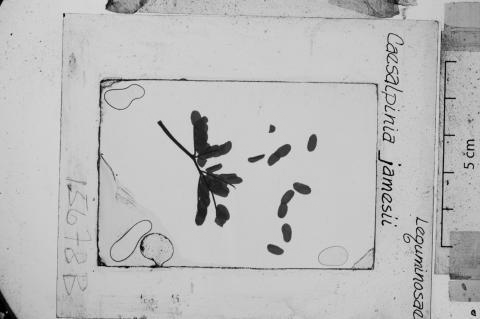 Caesalpinia jamesii
Leguminosae
15678B
5 cm